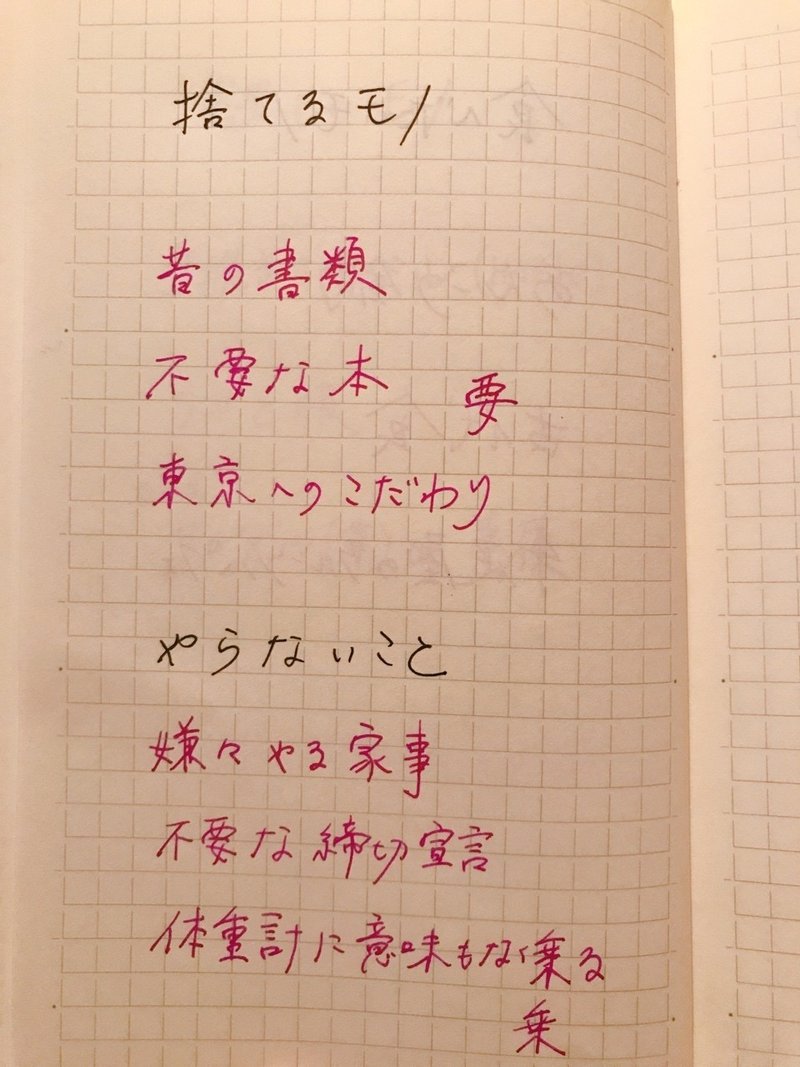 捨てるモノ
昔の書類
不要な本 要
東京へのこだわり
やらないこと
嫌々やる家事
不要な締切宣言
体重計に意味もなく乗る
乗